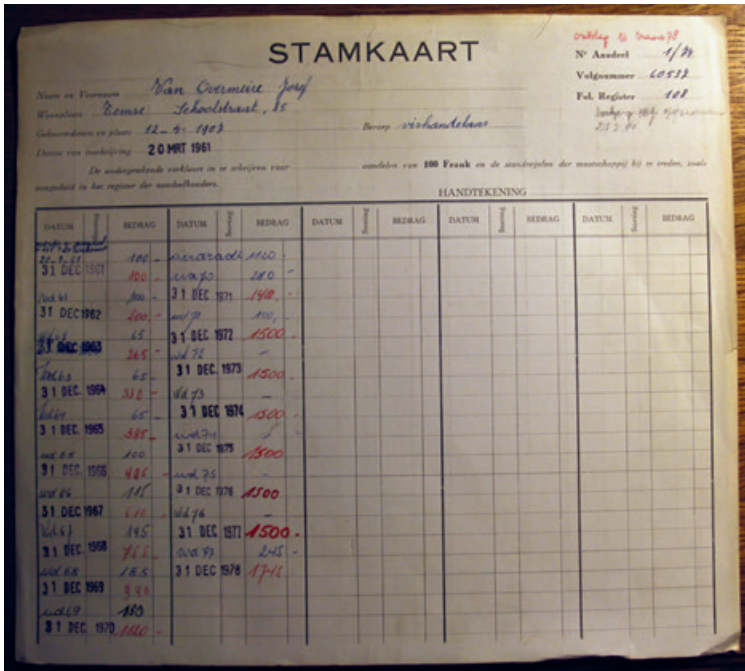 STAMKAART
Nº Aandeel 1/
Volgnummer 60527
Fol. Register 108
Naam en Voornaam Van Overmeire Josef
Woonplaats Temse Schoolstraat, 85
Geboortedatum en plaats 12-4-190 Beroep vishandelaar
Datum van inschrijving 20 MRT 1961
De ondergetekende verklaart in te schrijven voor aandelen van 100 Frank en de standregelen der maatschappij bij te treden, zoals
aangeduid in het register der aandeelhouders.
HANDTEKENING
DATUM BEDRAG DATUM BEDRAG DATUM BEDRAG DATUM BEDRAG DATUM BEDRAG
100 - 1120
31 DEC 1961 100 - 280 -
100 - 31 DEC 1971 -
31 DEC 1962 200 - 100,
65 31 DEC 1972 1500 -
31 DEC 1963 265 - wd 72 -
wd 63 65 - 31 DEC 1973 1500 -
31 DEC. 1964 330 - wd 73 -
wd 64 65 - 31 DEC 1974 1500 -
31 DEC. 1965 395 - wd 74 -
wd 65 100 31 DEC 1975 1500
31 DEC. 1966 495 - wd 75 -
wd 66 115 31 DEC 1976 1500
31 DEC 1967 610 - wd 76 -
wd 67 145 31 DEC 1977 1500 -
31 DEC. 1968 755 - wd 77 245 -
wd 68 185 31 DEC 1978 1745 -
31 DEC 1969 940
wd 69 180
31 DEC. 1970 1120 -